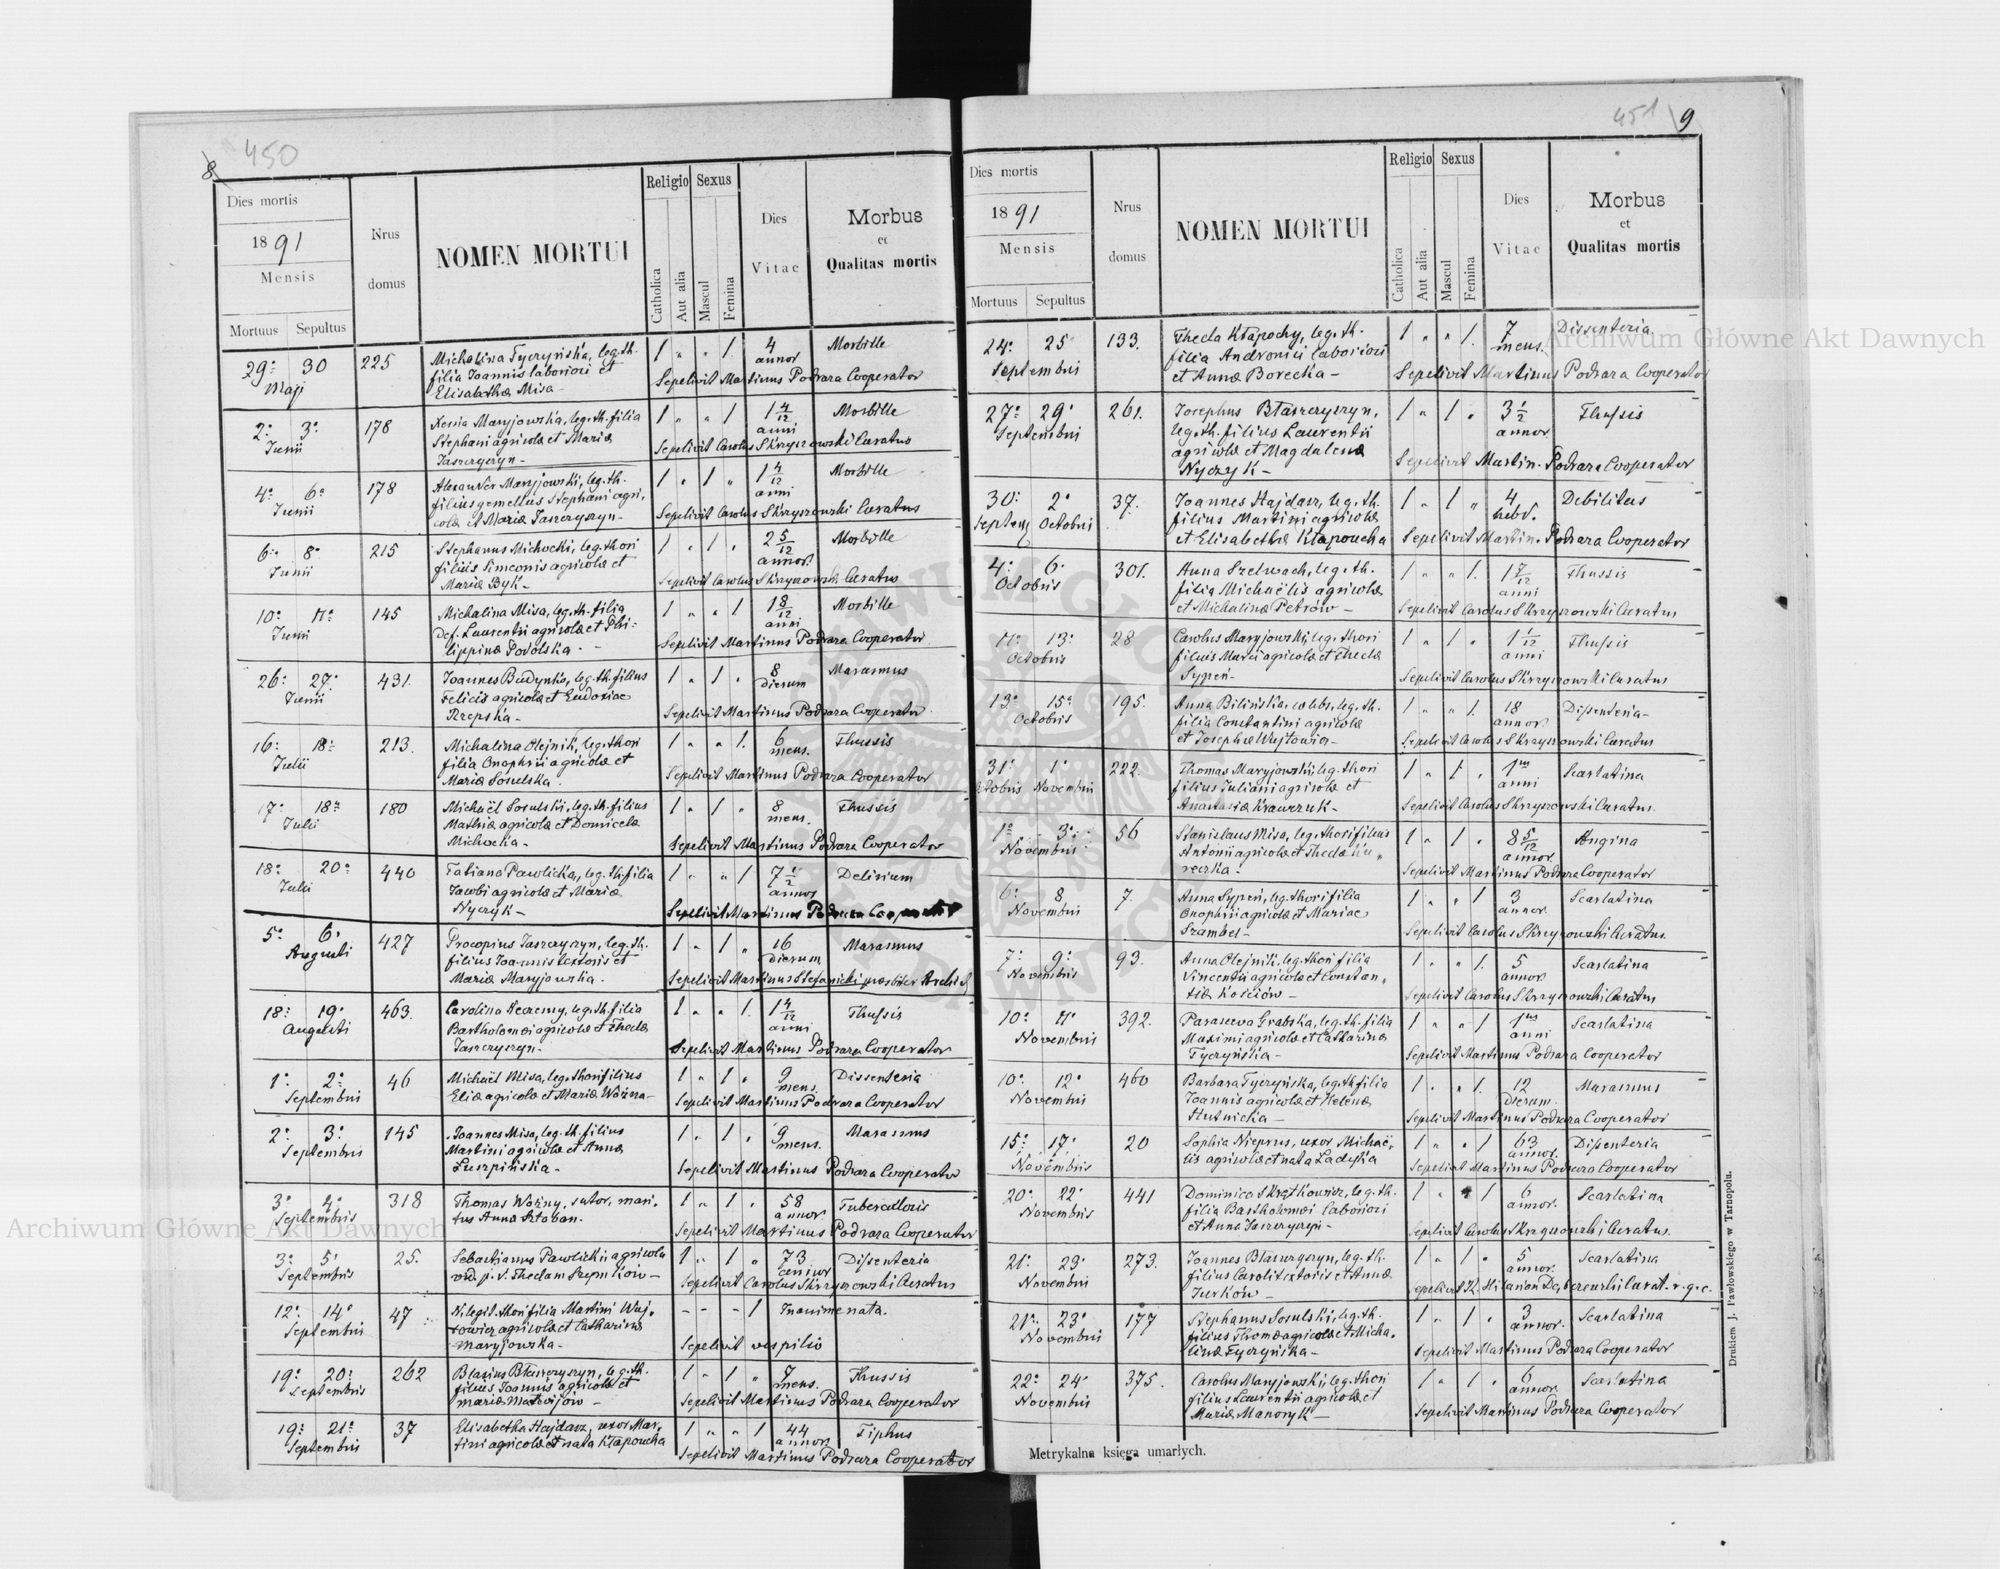 8 450
Dies mortis
1891
Mensis
Mortuus Sepultus
Nrus
domus
NOMEN MORTUI
Religio Sexus
Catholica
Aut alia
Mascul
Femina
Dies
Vitae
Morbus
et
Qualitas mortis
29. 30 225 Michalina Tyczyńska, leg. th. 1 " " 1. 4 Morbille
Maji filia Joannis laboriosi et annor
Elisabethæ Misa - Sepelivit Martinus Podrara Cooperator
2. 3. 178 Xenia Maryjowska, leg. th. filia 1 " " 1 1 4/12 Morbille
Junii Stephani agricolæ et Mariæ anni
Jaszczyszyn - Sepelivit Carolus Skrzyszowski Curatus
4. 6. 178 Alexander Maryjowski, leg. th. 1 " 1 " 1 4/12 Morbille
Junii filius gemellus Stephani agri, anni
colæ et Mariæ Jaszczyszyn - Sepelivit Carolus Skrzyszowski Curatus
6. 8. 215 Stephanus Michocki, leg. thori 1 " 1 " 2 5/12 Morbille
Junii filius Simeonis agricolæ et annor.
Mariæ Byk - Sepelivit Carolus Skrzyszowski Curatus
10. 11. 145 Michalina Misa, leg. th. filia 1 " " 1 1 8/12 Morbille
Junii Def. Laurentii agricolæ et Phi- anni
lippinæ Podolska - Sepelivit Martinus Podrara Cooperator
26. 27. 431. Joannes Budynko, leg. th. filius 1 " 1 " 8 Marasmus
Junii Felicis agricolæ et Eudoxiae dierum
Rzepska - Sepelivit Martinus Podrara Cooperator
16. 18. 213. Michalina Olejnik, leg. thori 1 " " 1. 6 Thussis
Julii filia Onophrii agricolæ et mens.
Mariæ Sosulska. Sepelivit Martinus Podrara Cooperator
17. 18. 180 Michaël Sosulski, leg. th. filius 1 " 1 " 8 Thussis
Julii Mathiæ agricolæ et Domicelæ mens.
Michocka - Sepelivit Martinus Podrara Cooperator
18. 20. 440 Tatiana Pawlicka, leg. th. filia 1 " " 1 7 1/2 Delirium
Julii Jacobi agricolæ et Mariæ annor
Nyczyk - Sepelivit Martinus Podrara Cooperator
5. 6. 427 Procopius Jaszczyszyn, leg. th. 1 " 1 " 16 Marasmus
Augusti filius Joannis textoris et dierum
Mariæ Maryjowska. Sepelivit Martinus Stefanicki presbiter
18. 19. 463. Carolina Kuczmy, leg. th. filia 1 " " 1. 1 4/12 Thussis
Augusti Bartholomæi agricolæ et Theclæ anni
Jaszczyszyn - Sepelivit Martinus Podrara Cooperator
1. 2. 46 Michaël Misa, leg. thori filius 1 " 1 " 9 Dissenteria
Septembris Eliæ agricolæ et Mariæ Woźna - mens. Sepelivit Martinus Podrara Cooperator
2. 3. 145 Joannes Misa, leg. th. filius 1 " 1 " 9 Marasmus
Septembris Martini agricolæ et Annæ mens.
Luszpińska - Sepelivit Martinus Podrara Cooperator
3. 4. 318 Thomas Woźny, sutor, mari- 1 " 1 " 58 Tuberculosis
Septembris tus Annæ Sztaban. annor. Sepelivit Martinus Podrara Cooperator
3. 5. 25. Sebastianus Pawlicki agricola 1 " 1 " 73 Dissenteria
Septembris vid. p. d. Theclam Szymków - annor Sepelivit Carolus Skrzyszowski Curatus
12. 14. 47 N. legit. thori filia Martini Woj- - - - 1 Inanime nata.
Septembris towicz agricolæ et Catharinæ
Maryjowska - Sepelivit vespilio
19. 20. 262 Blasius Błaszczyszyn, leg. th. 1 " 1 " 7 Thussis
Septembris filius Joannis agricolæ et mens.
Mariæ Matwijów - Sepelivit Martinus Podrara Cooperator
19. 21. 37 Elisabetha Hajdasz, uxor Mar- 1 " " 1 44 Tiphus
Septembris tini agricolæ et nata Kłapoucha annor. Sepelivit Martinus Podrara Cooperator
451 9
Dies mortis
1891
Mensis
Mortuus Sepultus
Nrus
domus
NOMEN MORTUI
Religio Sexus
Catholica
Aut alia
Mascul
Femina
Dies
Vitae
Morbus
et
Qualitas mortis
24. 25 133. Thecla Kłapochy, leg. th. 1 " " 1. 7 Dissenteria
Septembris filia Andronici laboriosi mens.
et Annæ Borecka - Sepelivit Martinus Podrara Cooperator
27. 29. 261. Josephus Błaszczyszyn, 1 " 1 " 3 1/2 Thussis
Septembris leg. th. filius Laurentii annor.
agricolæ et Magdalenæ
Nyczyk - Sepelivit Martin. Podrara Cooperator
30. 2. 37. Joannes Hajdasz, leg. th. 1 " 1 " 4 Debilitas
Septem. Octobris filius Martini agricolæ hebd.
et Elisabethæ Kłapoucha Sepelivit Martin. Podrara Cooperator
4. 6. 301. Anna Szelwach, leg. th. 1 " " 1. 1 7/12 Thussis
Octobris filia Michaëlis agricolæ anni
et Michalinæ Petrów - Sepelivit Carolus Skrzyszowski Curatus
11. 13. 28 Carolus Maryjowski, leg. thori 1 " 1 " 1 1/12 Thussis
Octobris filius Marci agricolæ et Theclæ anni
Sypień - Sepelivit Carolus Skrzyszowski Curatus
13. 15. 195. Anna Bilińska, cælebs, leg. th. 1 " " 1. 18 Dissenteria -
Octobris filia Constantini agricolæ annor.
et Josephæ Wujtowicz - Sepelivit Carolus Skrzyszowski Curatus
31. 1. 222. Thomas Maryjowski, leg. thori 1 " 1 " 1 Scarlatina
Octobris Novembris filius Juliani agricolæ et anni
Anastasiæ Krawczuk - Sepelivit Carolus Skrzyszowski Curatus.
1. 3. 56 Stanislaus Misa, leg. thori filius 1 " 1 " 8 5/12 Angina
Novembris Antonii agricolæ et Theclæ Ku- annor.
reczka. Sepelivit Martinus Podrara Cooperator
6. 8 7. Anna Sypień, leg. thori filia 1 " " 1 3 Scarlatina
Novembris Onophrii agricolæ et Mariae annor.
Szambel - Sepelivit Carolus Skrzyszowski Curatus.
7. 9. 93. Anna Olejnik, leg. thori filia 1 " " 1. 5 Scarlatina
Novembris Vincentii agricolæ et Constan- annor.
tiæ Kościów - Sepelivit Carolus Skrzyszowski Curatus
10. 11. 392. Parascewa Grabska, leg. th. filia 1 " " 1 1 Scarlatina
Novembris Maximi agricolæ et Catharinæ anni
Tyczyńska - Sepelivit Martinus Podrara Cooperator
10. 12. 460 Barbara Tyczyńska, leg. th. filia 1 " " 1. 12 Marasmus
Novembris Joannis agricolæ et Helenæ dierum.
Hutnicka - Sepelivit Martinus Podrara Cooperator
15. 17. 20 Sophia Nieprus, uxor Michaë- 1 " " 1 63 Dissenteria
Novembris lis agricolæ et nata Ladyka annor. Sepelivit Martinus Podrara Cooperator
20. 22. 441 Dominica Skrątkowicz, leg. th. 1 " " 1 6 Scarlatina
Novembris filia Bartholomæi laboriosi annor.
et Annæ Jaszczyszyn - Sepelivit Carolus Skrzyszowski Curatus.
21. 23. 273. Joannes Błaszczyszyn, leg. th. 1 " 1 " 5 Scarlatina
Novembris filius Caroli textoris et Annæ annor.
Jurków - Sepelivit X. Hilarion Curat. r. g. c.
21. 23. 177 Stephanus Sosulski, leg. th. 1 " 1 " 3 Scarlatina
Novembris filius Thomæ agricolæ et Micha- annor.
linæ Tyczyńska - Sepelivit Martinus Podrara Cooperator
22. 24. 375. Carolus Maryjowski, leg. thori 1 " 1 " 6 Scarlatina
Novembris filius Laurentii agricolæ et annor.
Mariæ Manoryk - Sepelivit Martinus Podrara Cooperator
Metrykalna księga umarłych.
Drukiem J. Pawłowskiego w Tarnopolu.
Archiwum Główne Akt Dawnych
Archiwum Główne Akt Dawnych